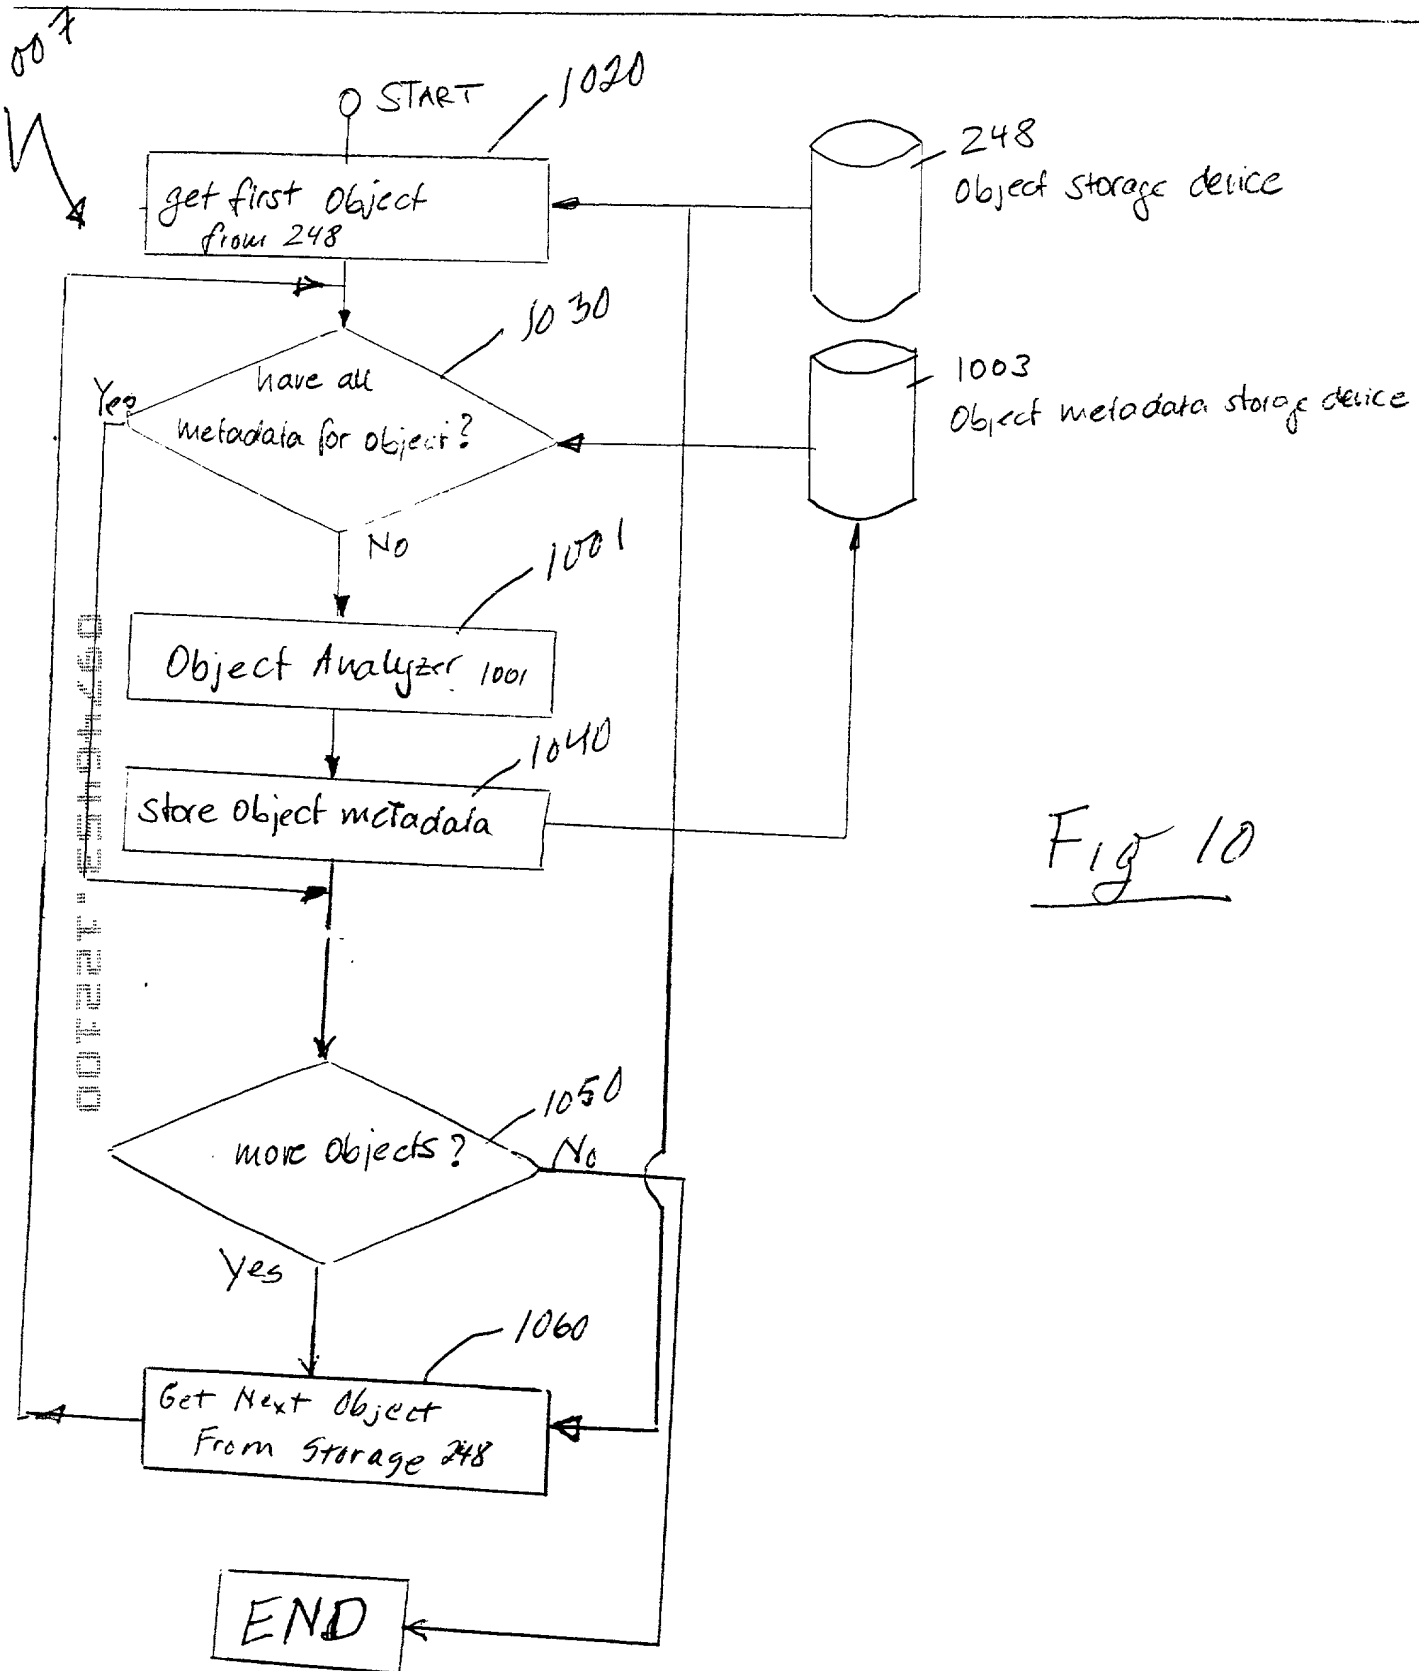 007
START
1020
get first Object
from 248
248
Object storage device
1030
have all
metadata for object?
Yes
1003
Object metadata storage device
No
1001
Object Analyzer 1001
1040
store Object metadata
Fig 10
1050
more Objects?
No
Yes
1060
Get Next Object
From Storage 248
END